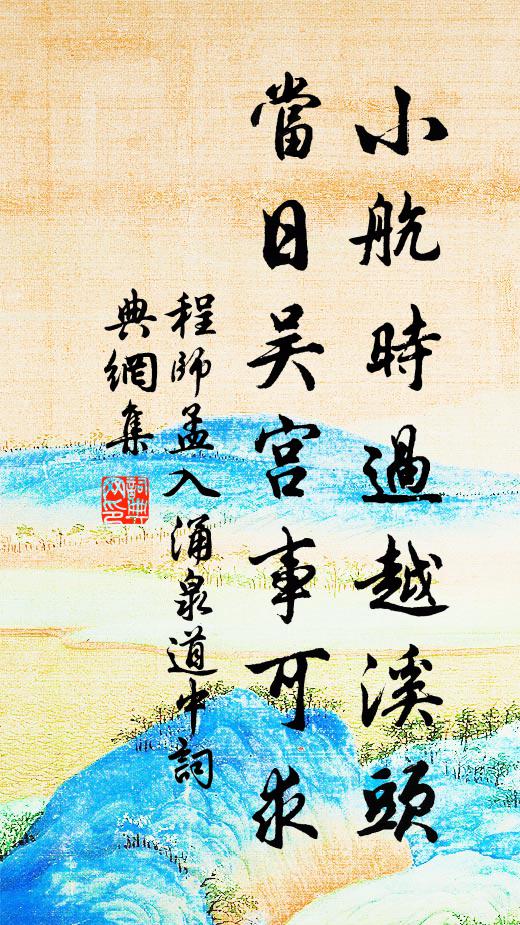 小航時過越溪頭
當日吴宫事可求
程師孟入涌泉道中詞
典網集
詞典網印